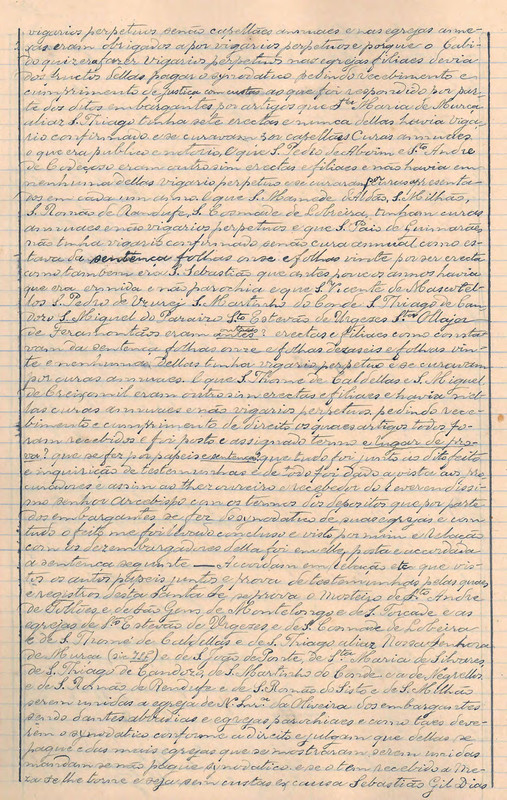 vigarios perpetuos senão capellães annuaes e nas egrejas anne-
xas eram obrigados a por vigarios perpetuos e porque o Cabi-
do quizera fazer vigarios perpetuos nas egrejas filiaes devia
dos fructos dellas pagar o synodatico pedindo recebimento e
cumprimento de justiça com custas ao que foi respondido por par-
te dos ditos embargantes por artigos que S.ta Maria de Murça
aliaz S. Thiago tinha sete erectas e nunca dellas havia viga-
rio confirmado e se curavam por capellães Curas annuaes
e que era publico e notorio. O que S. Pedro de Alvim e S.to André
de Codeçoso eram outro sim erectas e filiaes e não havia em
nenhuma dellas vigario perpetuo e se curaram por curas apresenta-
dos em cada um anno. O que S. Mamede de Aldão, S. Milhão,
S. Romão de Rendufe, S. Cosmade de Lobeira, tinham curas
annuaes e não vigarios perpetuos e que S. Paio de Guimarães
não tinha vigario confirmado senão cura annual como es-
tava da sentença folhas onze e folhas vinte por ser erecta
como tambem era S. Sebastião que antes poucos annos havia
que era ermida e não parochia e que S. Vicente de Mascotel-
los S. Pedro de Azurei S. Martinho do Conde S. Thiago de Can-
doso S. Miguel do Paraizo S.to Estevão de Urgezes
de eram erectas e filiaes como consta-
vam da sentença folhas onze e folhas dezaseis e folhas vin-
te e nenhuma dellas tinha vigario perpetuo e se curavam
por curas annuaes. O que S. Thomé de Caldellas e S. Miguel
de Creixomil eram outro sim erectas e filiaes e havia nel-
las curas annuaes e não vigarios perpetuos, pedindo rece-
bimento e cumprimento de direito os quaes artigos todos fo-
ram recebidos e foi posto e assignado termo e lugar de pro-
va? que se fez por papeis e sentença? que tudo foi junto ao dito feito
e inquirição de testemunhas e de todo foi dado a vista aos pro-
curadores e assim ao thesoureiro e recebedor do Reverendissi-
mo senhor Arcebispo com os termos dos depositos que por parte
dos embargantes se fez do synodatico de suas egrejas e com
tudo o feito me foi levado concluso e visto por mim em Relação
com os dezembargadores della foi em elle posta e accordada
a sentença seguinte — Acordam em relação etc que vis-
tos os autos papeis juntos e prova de testemunhas pelas quaes
e registros desta Santa Sé, se prova o Mosteiro de S.to André
de Tolões e de São Gens de Montelongo e de S. Torcade e as
egrejas de S.to Estevão de Urgezes e de S. Cosmade de Lobeira
e de S. Thomé de Caldellas e de S. Thiago aliaz Nossa Senhora
de Murça (sic 715) e de S. João de Ponte, de S.ta Maria de Silvares,
de S. Thiago de Candozo, de S. Martinho do Conde e a de Negrellos
e de S. Romão de Rendufe e de S. Romão do Sisto e de S. Milhão
serem unidas a egreja de N.a Snr.a da Oliveira dos embargantes
sendo dantes abbadias e egrejas parochiaes e como taes deve-
rem o synodatico conforme a direito e julgam que dellas se
pague e das mais egrejas que se mostraram serem unidas
mandam se não pague synodatico e se o tem recebido a Me-
za se lhe torne e seja sem custas ex causa Sebastião Gil Dias